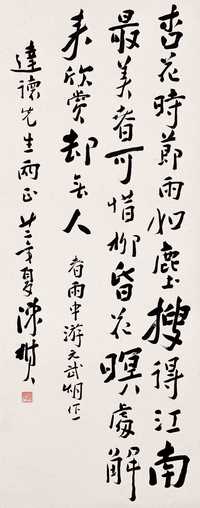 杏花時節雨如塵搜得江南
最美者可惜柳昏花暝處解
來欣賞却無人 春雨中游元武湖作
達德先生雨正 廿二年夏 陳樹人